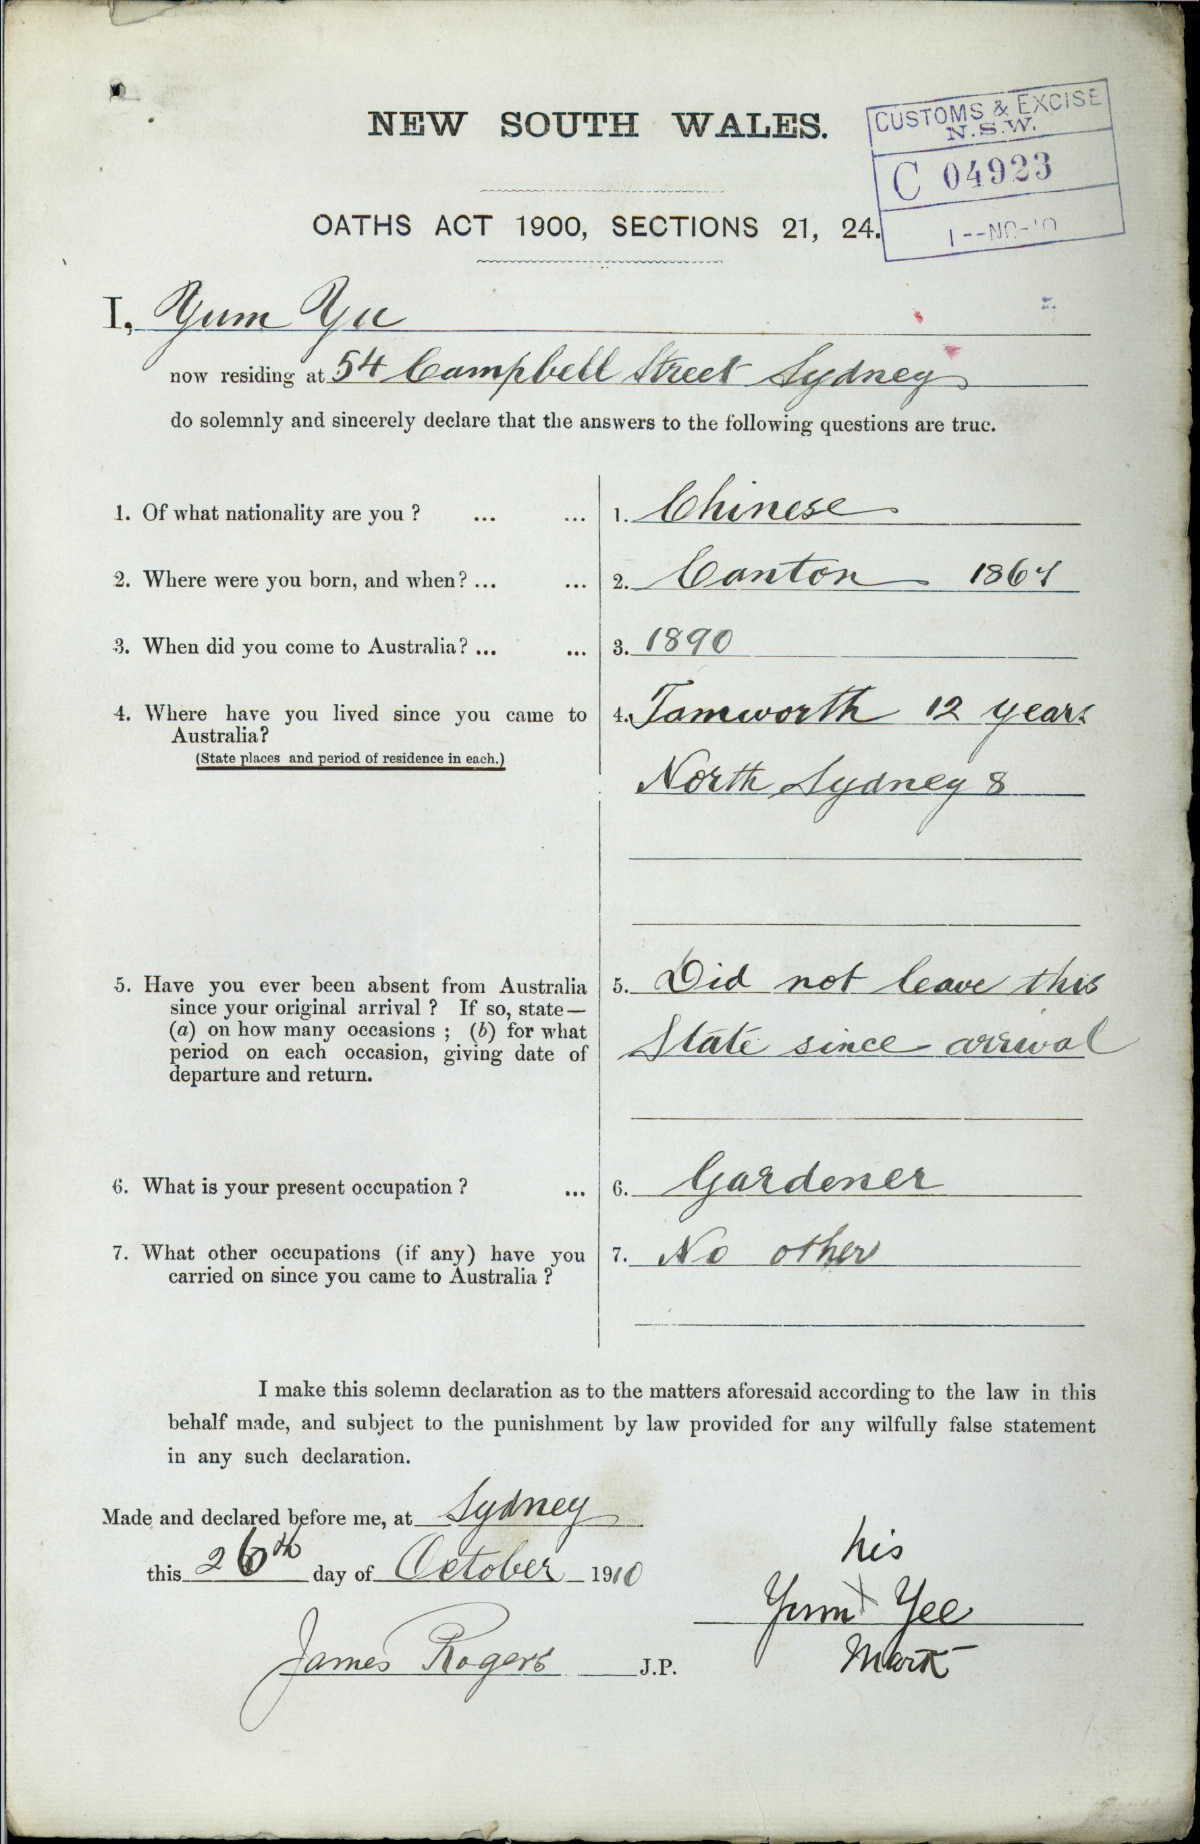 NEW SOUTH WALES.
CUSTOMS & EXCISE
N.S.W.
C 04923
OATHS ACT 1900, SECTIONS 21, 24.
I, Yum Yu
now residing at 54 Campbell Street Sydney
do solemnly and sincerely declare that the answers to the following questions are true.
1. Of what nationality are you ? ... ... 1. Chinese
2. Where were you born, and when? ... ... 2. Canton
3. When did you come to Australia? ... ... 3. 1890
4. Where have you lived since you came to 4. Tamworth 12 years
Australia?
(State places and period of residence in each.)
North Sydney 8
5. Have you ever been absent from Australia 5. Did not leave this
since your original arrival ? If so, state—
(a) on how many occasions ; (b) for what
State since arrival
period on each occasion, giving date of
departure and return.
6. What is your present occupation ? ... 6. Gardener
7. What other occupations (if any) have you 7. No other
carried on since you came to Australia ?
I make this solemn declaration as to the matters aforesaid according to the law in this
behalf made, and subject to the punishment by law provided for any wilfully false statement
in any such declaration.
Made and declared before me, at Sydney
this 26th day of October 1910
his
Yum X Yee
Mark
James Rogers J.P.